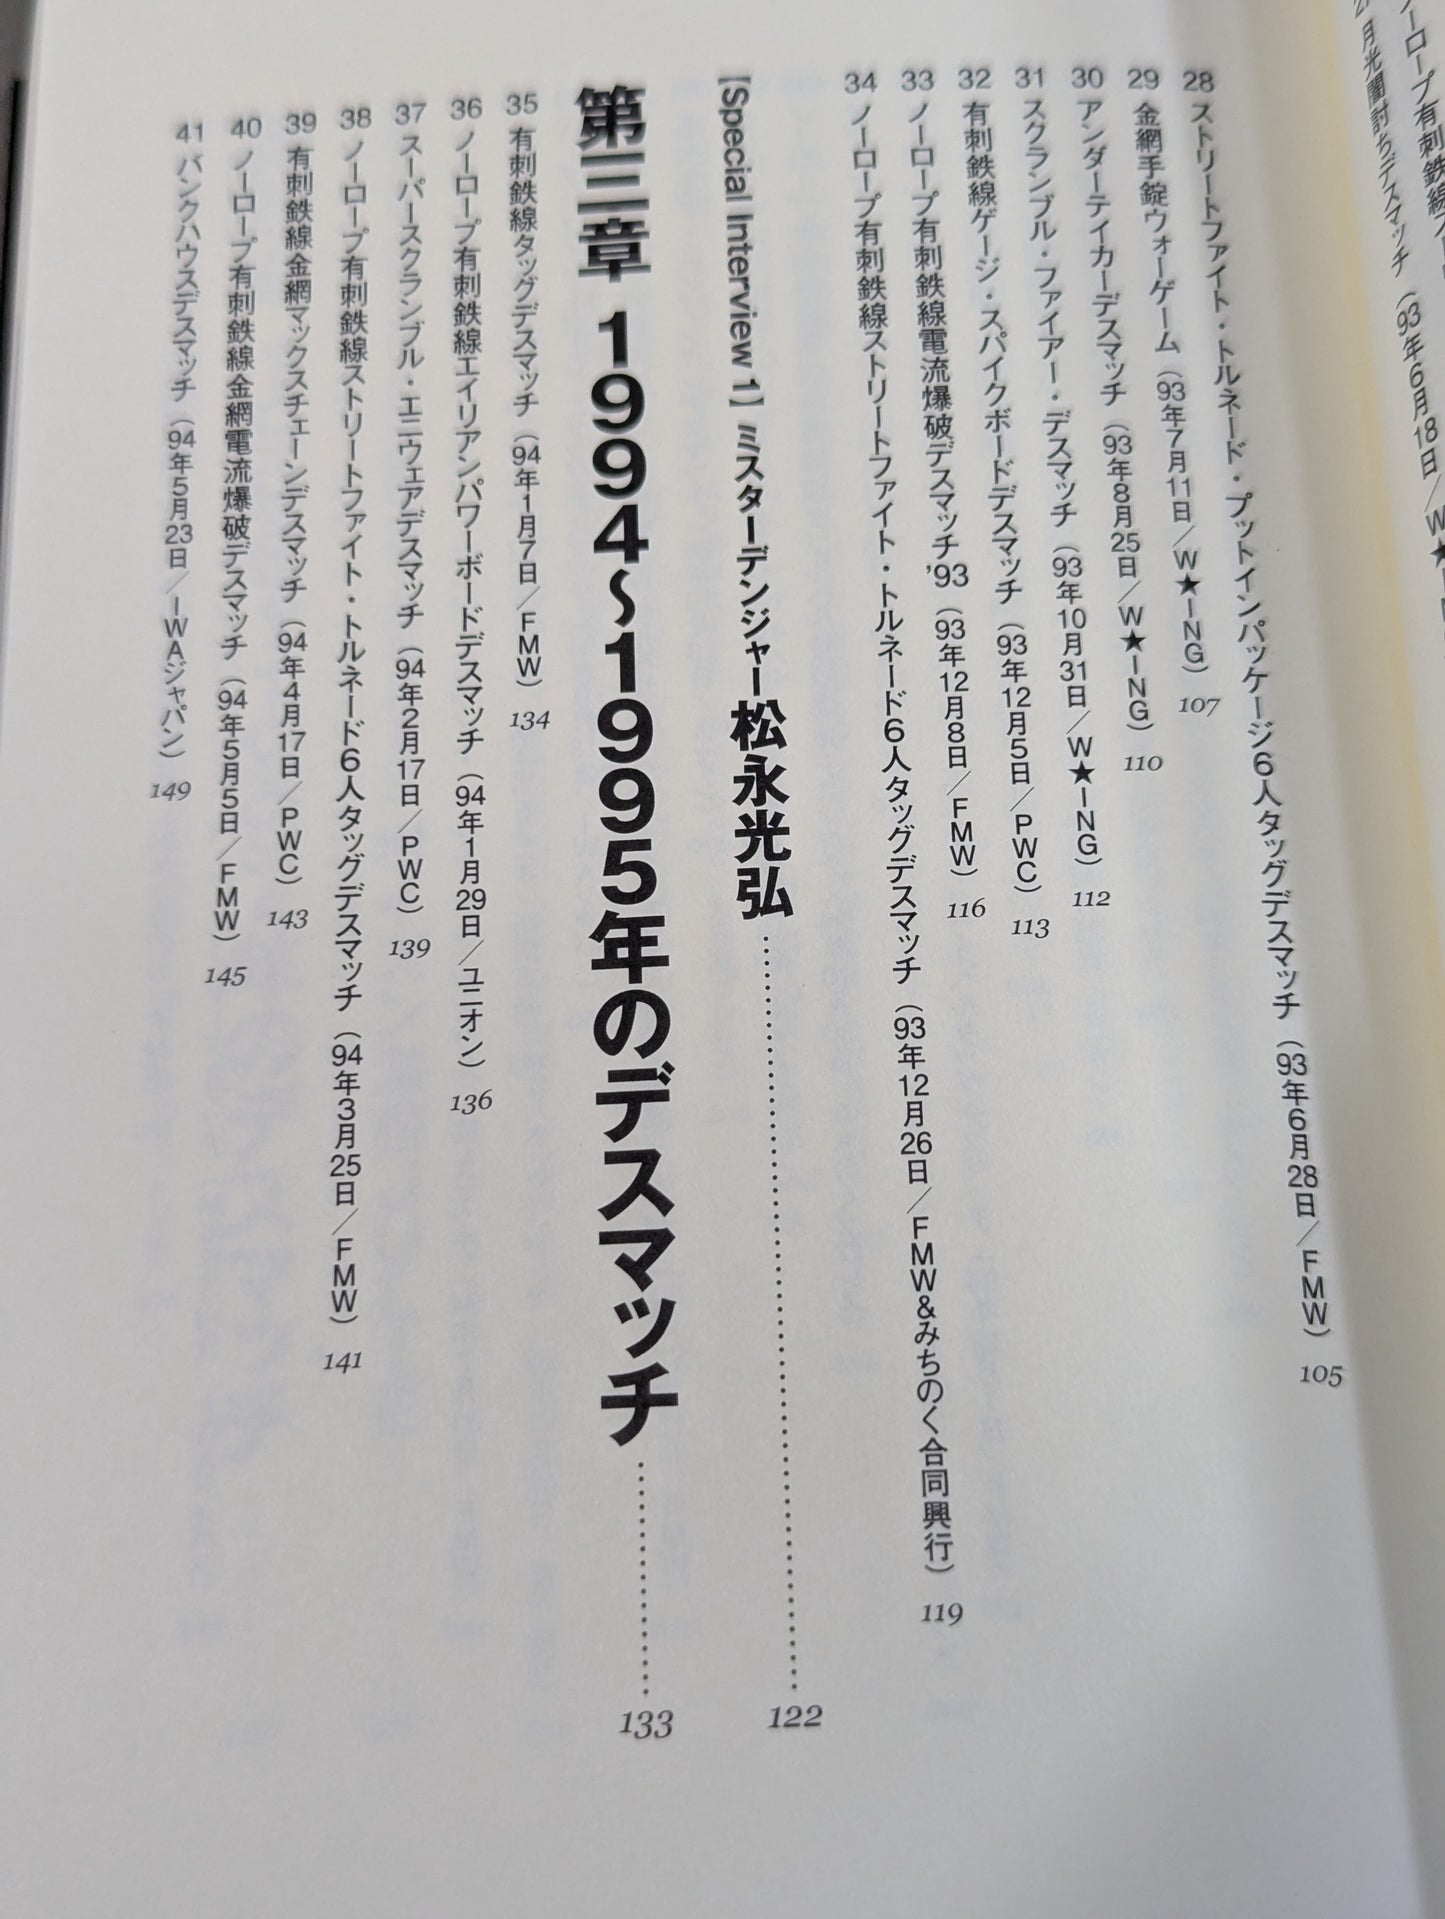 ノーロープ有刺鉄線
月光闇討ちデスマッチ（93年6月18日／W★
28 ストリートファイト・トルネード・プットインパッケージ6人タッグデスマッチ（93年6月28日／FMW） 105
29 金網手錠ウォーゲーム（93年7月11日／W★ING） 107
30 アンダーテイカーデスマッチ（93年8月25日／W★ING） 110
31 スクランブル・ファイアー・デスマッチ（93年10月31日／W★ING） 112
32 有刺鉄線ゲージ・スパイクボードデスマッチ（93年12月5日／PWC） 113
33 ノーロープ有刺鉄線電流爆破デスマッチ'93（93年12月8日／FMW） 116
34 ノーロープ有刺鉄線ストリートファイト・トルネード6人タッグデスマッチ（93年12月26日／FMW&みちのく合同興行） 119
【Special Interview 1】ミスターデンジャー松永光弘 122
第三章 1994〜1995年のデスマッチ 133
35 有刺鉄線タッグデスマッチ（94年1月7日／FMW） 134
36 ノーロープ有刺鉄線エイリアンパワーボードデスマッチ（94年1月29日／ユニオン） 136
37 スーパースクランブル・エニウェアデスマッチ（94年2月17日／PWC） 139
38 ノーロープ有刺鉄線ストリートファイト・トルネード6人タッグデスマッチ（94年3月25日／FMW） 141
39 有刺鉄線金網マックスチェーンデスマッチ（94年4月17日／PWC） 143
40 ノーロープ有刺鉄線金網電流爆破デスマッチ（94年5月5日／FMW） 145
41 バンクハウスデスマッチ（94年5月23日／IWAジャパン） 149